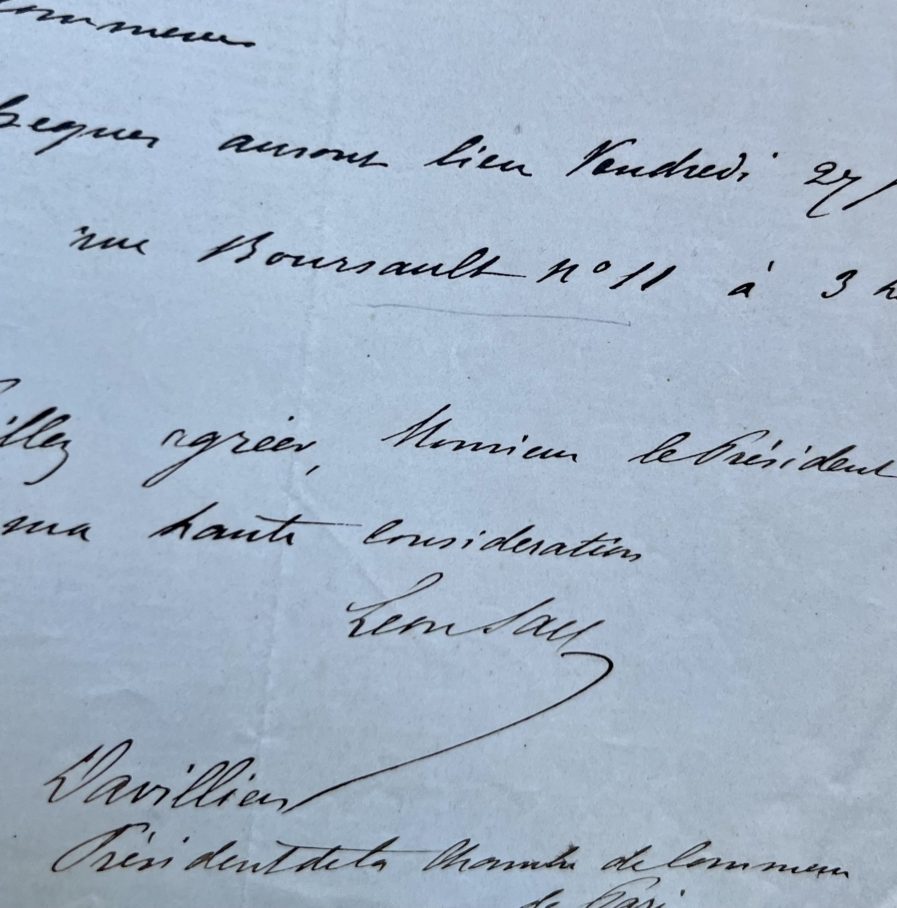 ommerce
bseques auront lieu Vendredi 27/
rue Boursault nº 11 à 3 h
illez agréer, Monsieur le Président
ma haute consideration
Leon Say
Davillier
Président de la Chambre de Commerce
de Pari